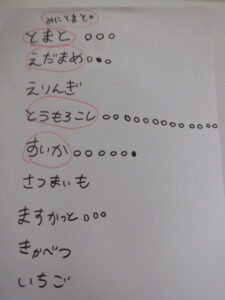 みにとまと。
とまと ○○○
えだまめ○●○
えりんぎ
とうもろこし○○○○○○○○○○○○○○
すいか○○○○○●
さつまいも
ますかっと○○○
きゃべつ
いちご